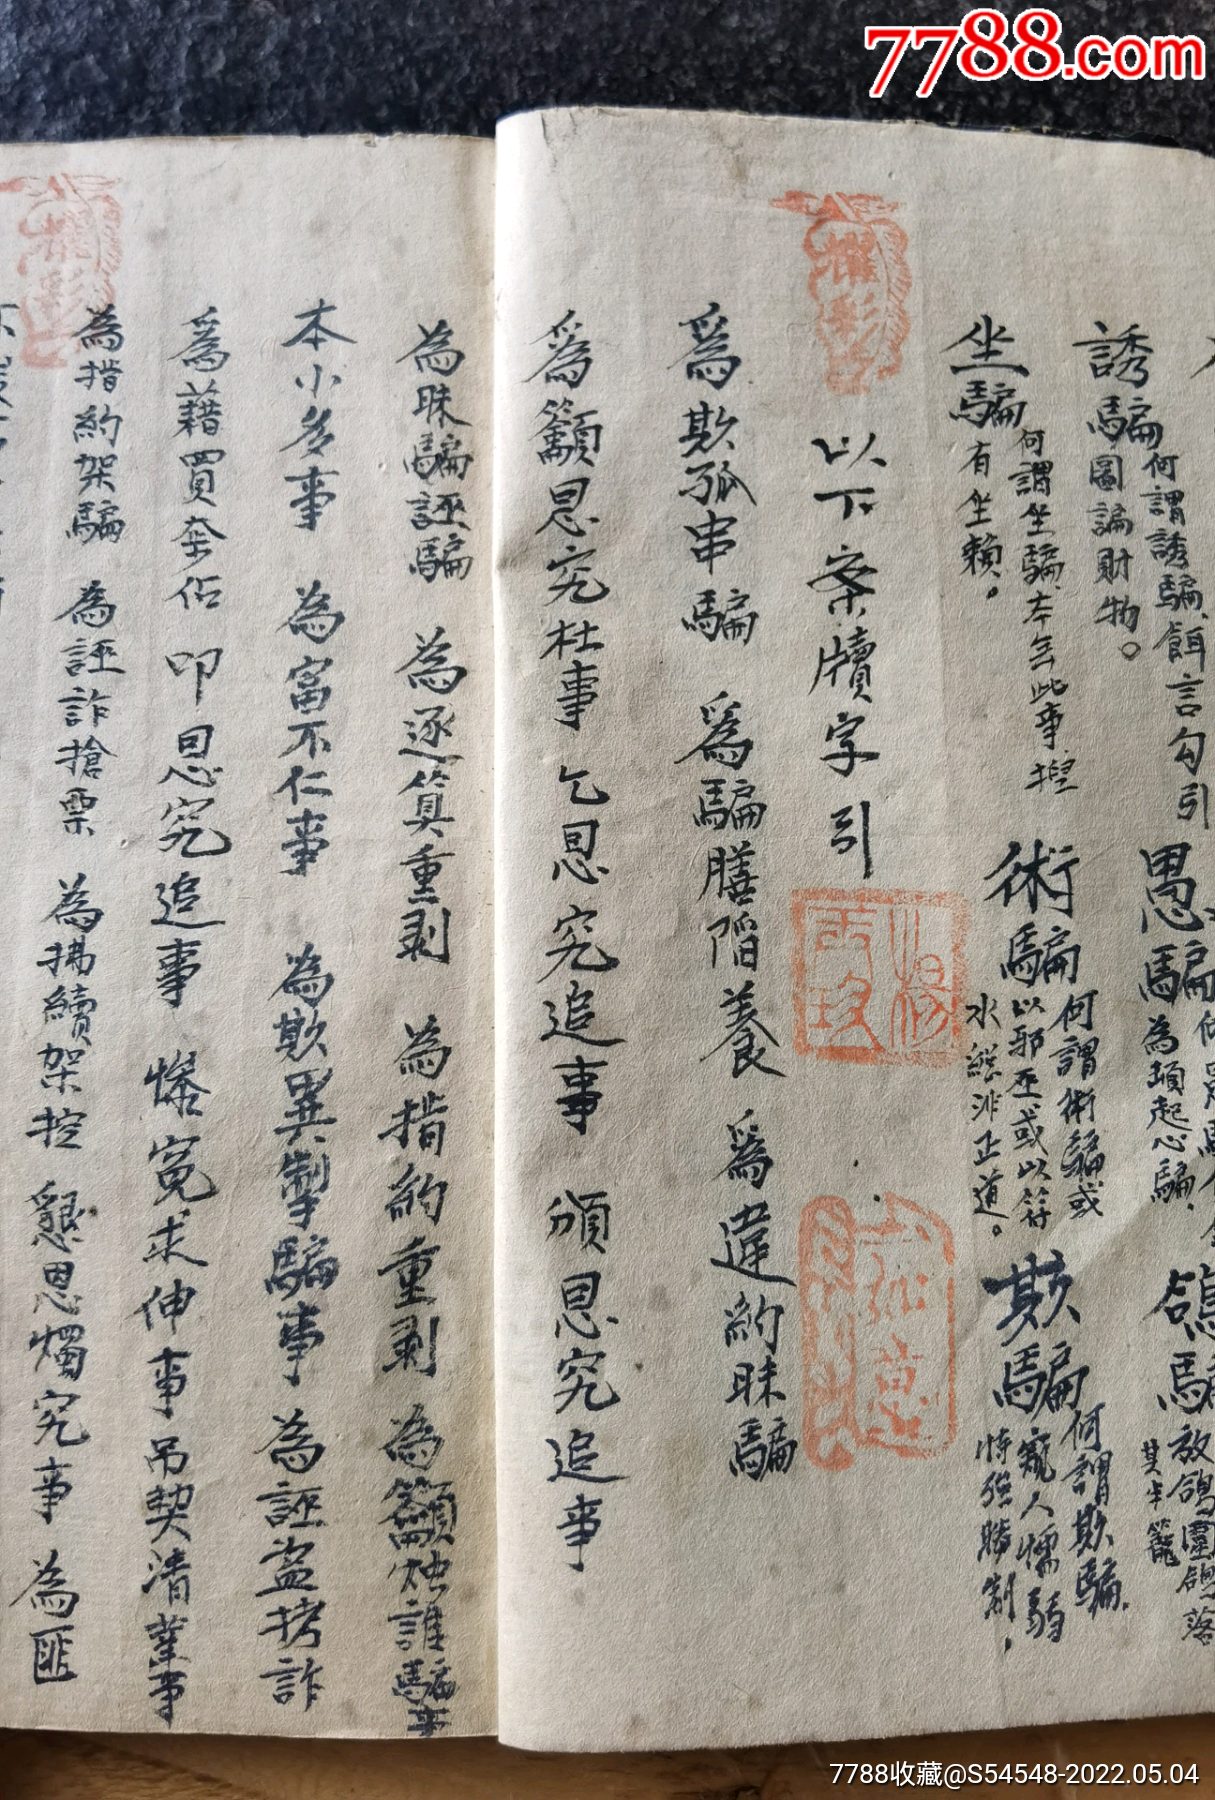 7788.com
誘騙 何謂誘騙、餌言勾引
圖謀財物。
愚騙
為頭起心騙、
鴿騙 放鴿圍鴿落
其牢籠
坐騙 何謂坐騙、本無此事、捏
有坐賴。
術騙 何謂術騙或
以邪巫或以符
水總非正道。
欺騙 何謂欺騙、
窺人懦弱
恃強勝制、
以下案牘字引
為欺孤串騙 為騙膳陷養 為違約昧騙
為籲恩究杜事 乞恩究追事 頒恩究追事
為昧騙誣騙 為逐算重剥 為措約重剥 為籲燭誰騙事
本小多事 為富不仁事 為欺異掣騙事 為誣盜拷詐
為藉買奪佔 叩恩究追事 慘冤求伸事 吊契清業事
為措約架騙 為誣詐搶票 為拂續架控 懇恩燭究事 為匪
7788收藏@S54548-2022.05.04